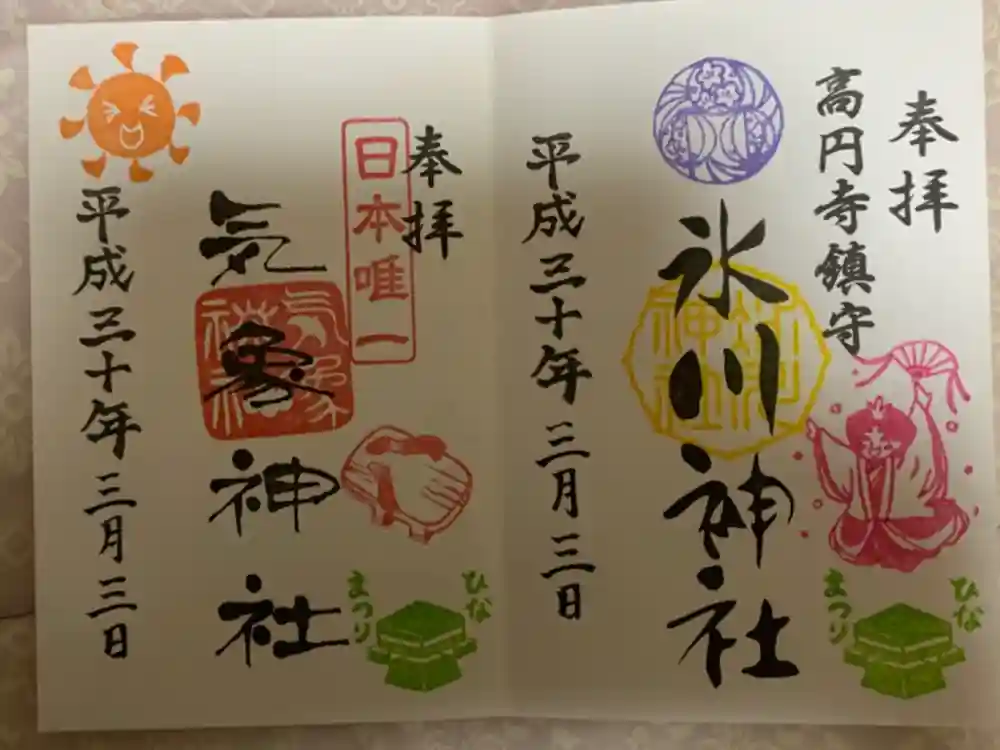 奉拝
高円寺鎮守
氷川神社
平成三十年三月三日
ひな
まつり
奉拝
日本唯一
気象神社
気象
神社
平成三十年三月三日
ひな
まつり